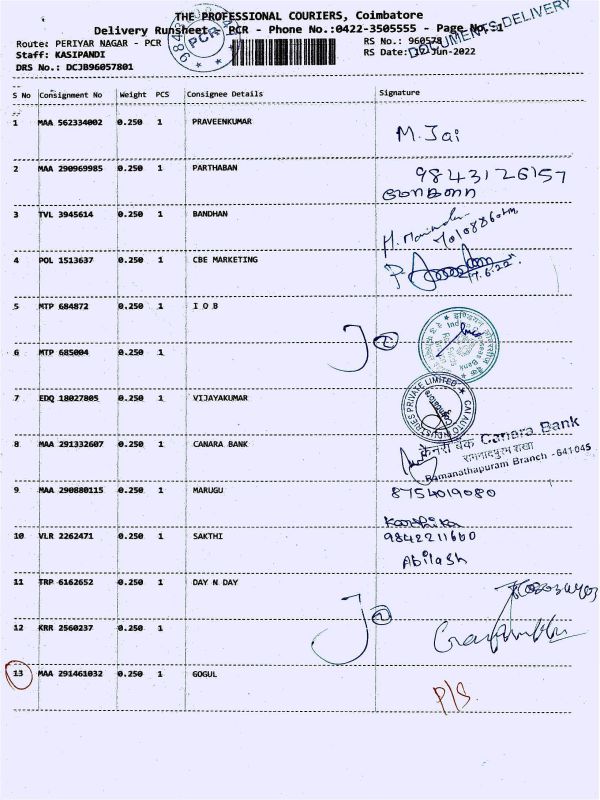 THE PROFESSIONAL COURIERS, Coimbatore
Delivery Runsheet - PCR - Phone No.:0422-3505555 - Page No.:1
DOCUMENTS DELIVERY
Route: PERIYAR NAGAR - PCR
RS No.: 960578
Staff: KASIPANDI
RS Date: 17-Jun-2022
DRS No.: DCJB96057801
PCR
S No Consignment No Weight PCS Consignee Details Signature
1 MAA 562334002 0.250 1 PRAVEENKUMAR
M. Jai
2 MAA 290969985 0.250 1 PARTHABAN
9843126157
3 TVL 3945614 0.250 1 BANDHAN
4 POL 1513637 0.250 1 CBE MARKETING
17.6.22
5 MTP 684872 0.250 1 I O B
6 MTP 685004 0.250 1
7 EDQ 18027805 0.250 1 VIJAYAKUMAR
CAI AUTO INDUSTRIES PRIVATE LIMITED
8 MAA 291332607 0.250 1 CANARA BANK
केनरा बैंक Canara Bank
रामनाथपुरम शाखा
Ramanathapuram Branch - 641045
9 MAA 290880115 0.250 1 MARUGU
8754019080
Karthika
10 VLR 2262471 0.250 1 SAKTHI
9842211600
Abilash
11 TRP 6162652 0.250 1 DAY N DAY
12 KRR 2560237 0.250 1
13 MAA 291461032 0.250 1 GOGUL
P/S.